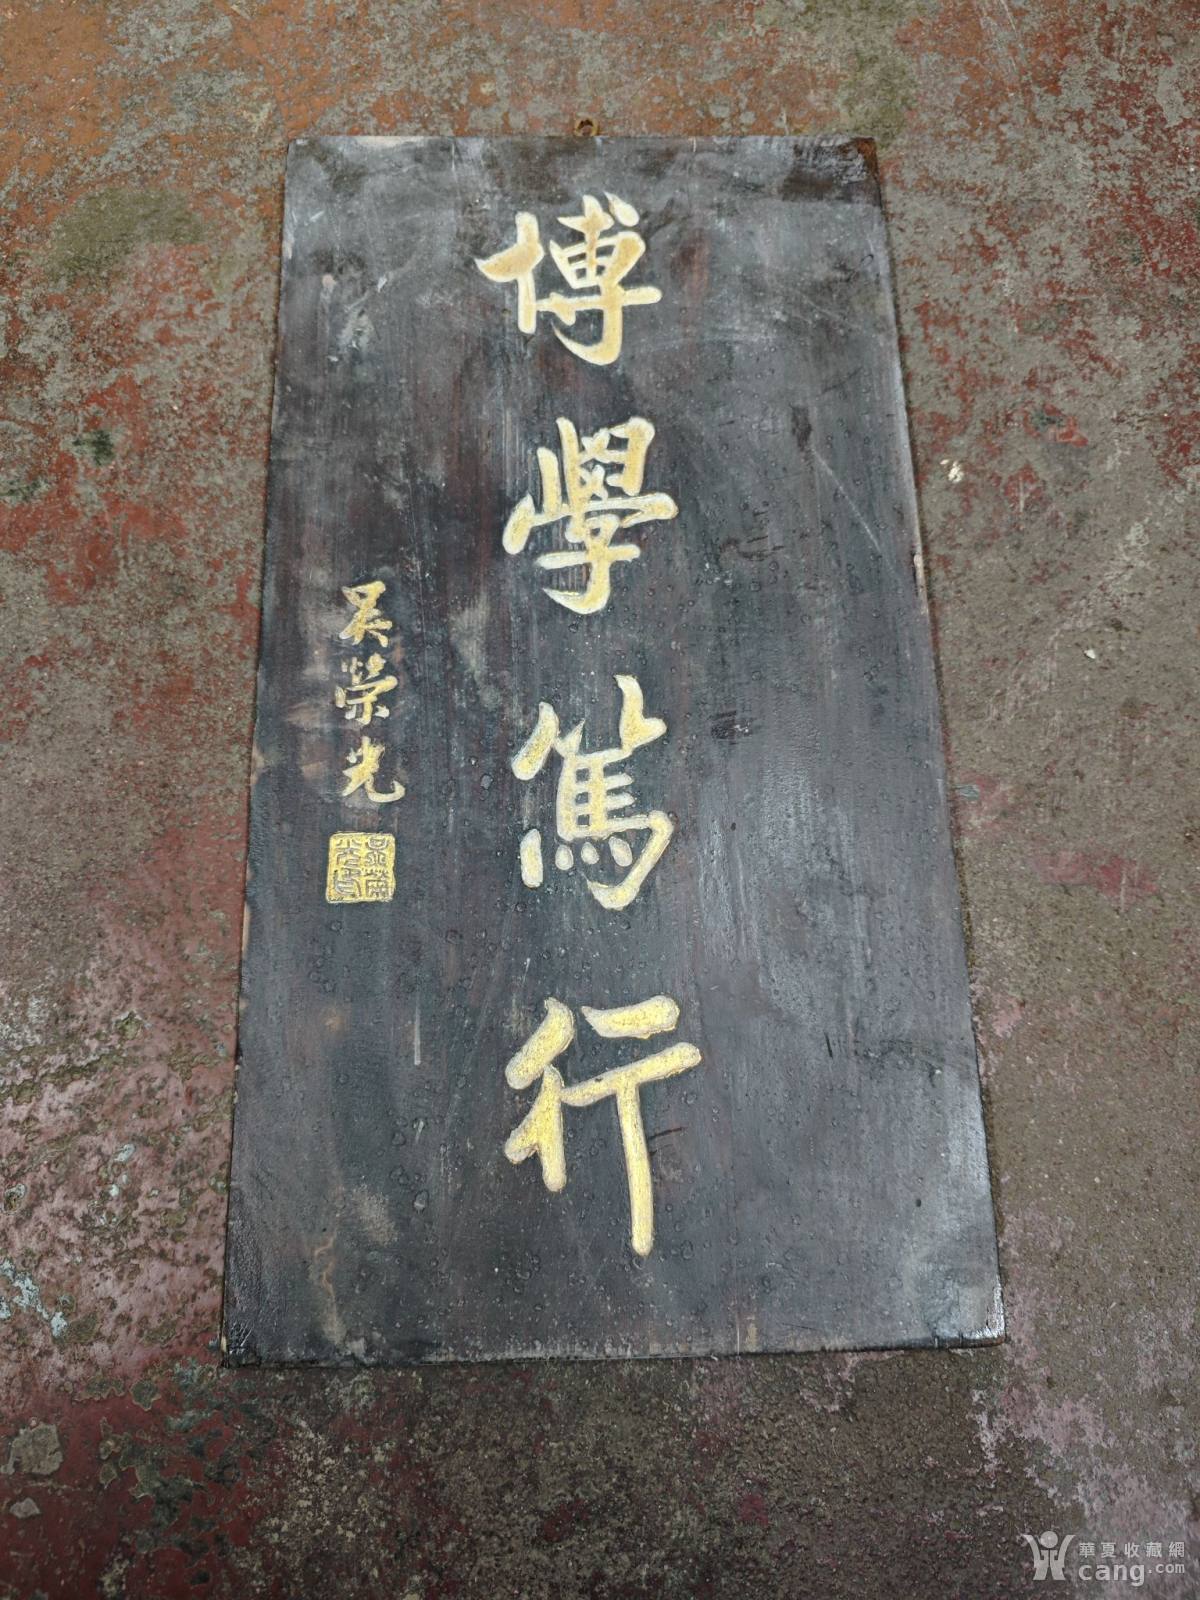 博學篤行
吳榮光
吳榮光印
華夏收藏網
cang.com